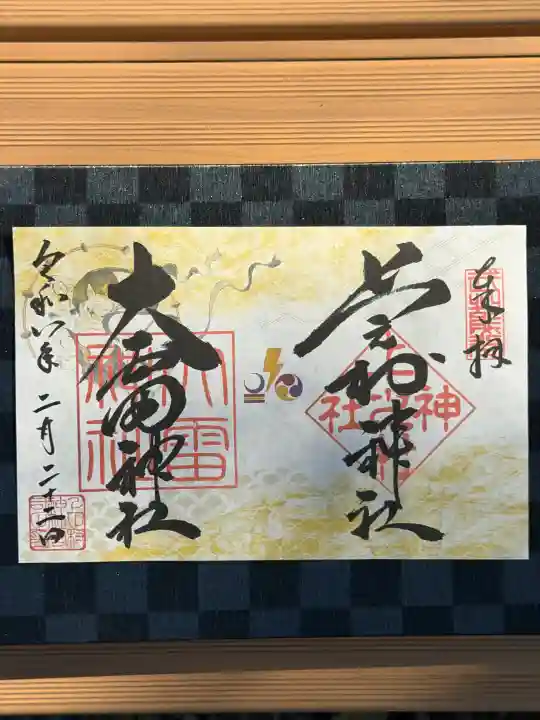 奉拝
上之村神社
大雷神社
大雷神社
令和八年二月二十一日